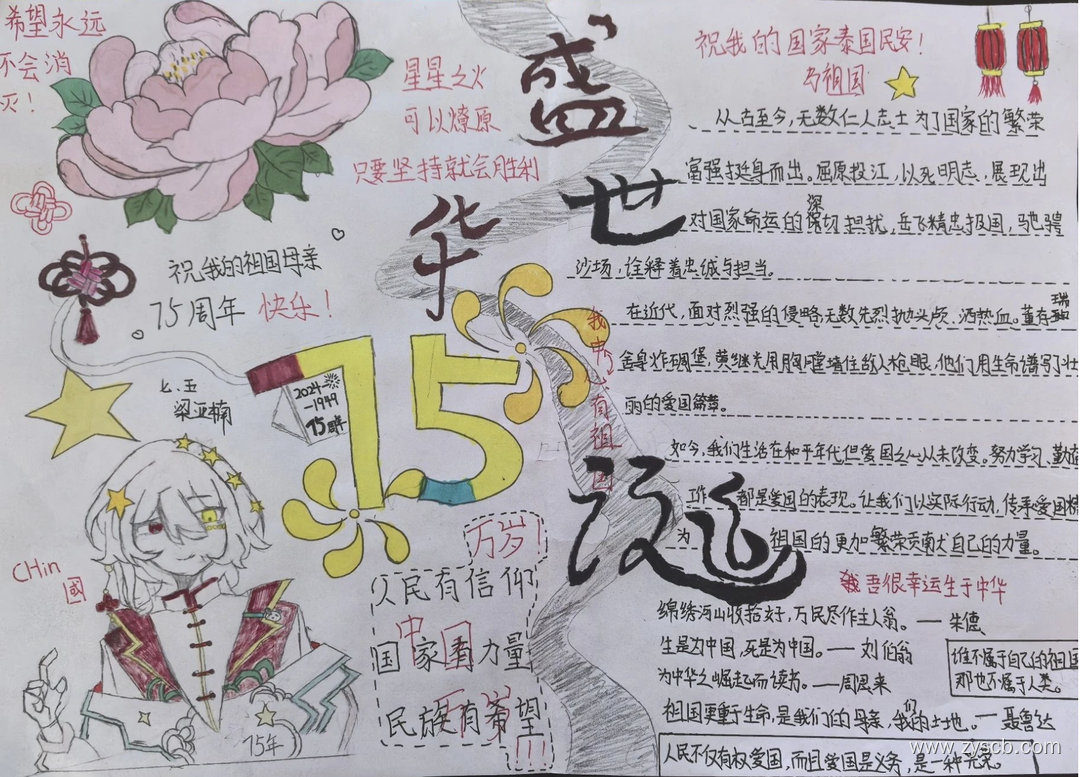 希望永远
不会消
灭！
星星之火
可以燎原
只要坚持就会胜利
祝我的祖国母亲
75周年 快乐！
七.五
梁亚楠
2024-
-1949
75周年
CHin
國
15年
万岁！
人民有信仰
中国
国家有力量
万岁
民族有希望
!!!
盛世华诞
我中心有祖国
祝我的国家泰国民安！
与祖国
从古至今,无数仁人志士为了国家的繁荣
富强挺身而出。屈原投江,以死明志,展现出
对国家命运的深切担扰,岳飞精忠报国,驰骋
沙场,诠释着忠诚与担当。
在近代,面对烈强的侵略无数先烈抛头颅、洒热血。董存瑞
舍身炸碉堡,黄继光用胸膛堵住敌人枪眼,他们用生命谱写了壮
丽的爱国篇章。
如今,我们生活在和平年代但爱国之心从未改变。努力学习、勤奋
工作,都是爱国的表现。让我们以实际行动,传承爱国精
为 祖国的更加繁荣贡献自己的力量。
吾很幸运生于中华
绵绣河山收拾好,万民尽作主人翁。一朱德
生是为中国,死是为中国。——刘伯翁
为中华之崛起而读书。——周恩来
谁不属于自己的祖国
那也不属于人类。
祖国更重于生命,是我们的母亲,我们的土地。—聂鲁达
人民不仅有权爱国,而且爱国是义务,是一种光荣。
www.zyscb.com